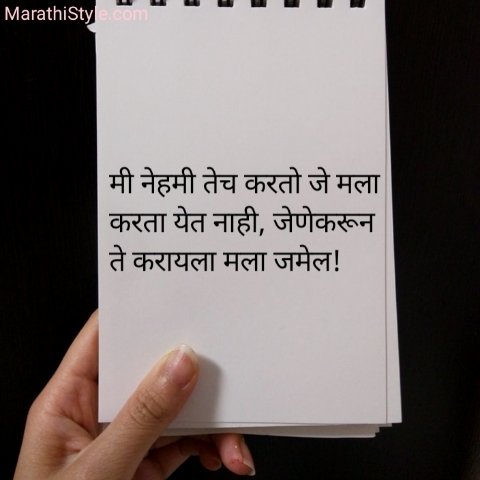 MarathiStyle.com
मी नेहमी तेच करतो जे मला
करता येत नाही, जेणेकरून
ते करायला मला जमेल!